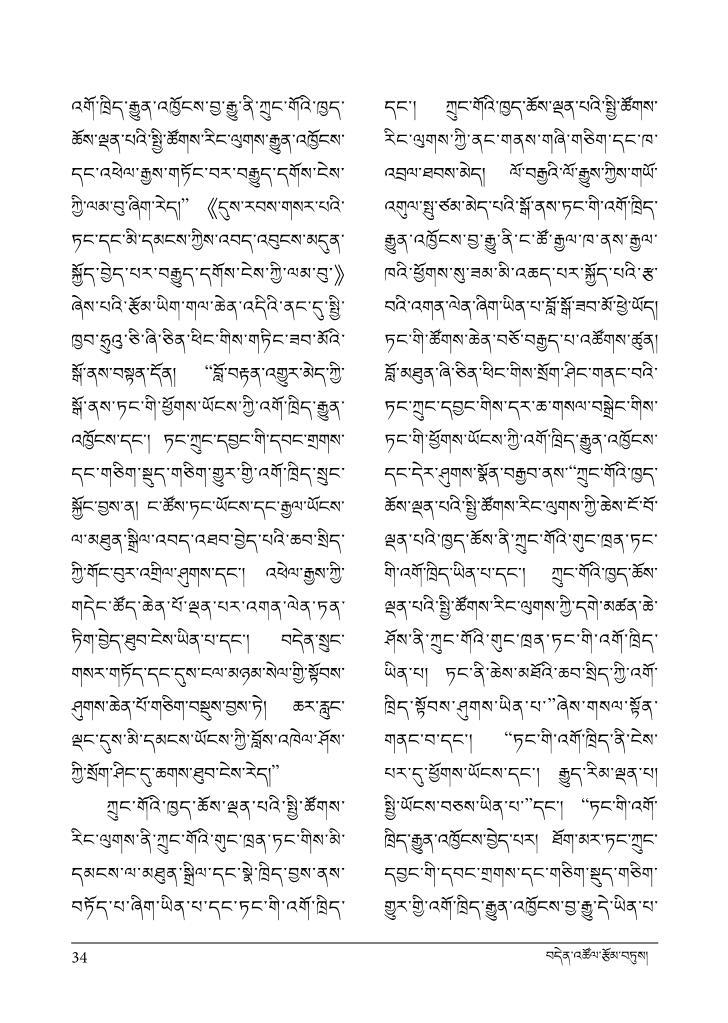 འགོ་ཁྲིད་རྒྱུན་འཁྱོངས་བྱ་རྒྱུ་ནི་ཀྲུང་གོའི་ཁྱད་
ཆོས་ལྡན་པའི་སྤྱི་ཚོགས་རིང་ལུགས་རྒྱུན་འཁྱོངས་
དང་འཕེལ་རྒྱས་གཏོང་བར་བརྒྱུད་དགོས་ངེས་
ཀྱི་ལམ་བུ་ཞིག་རེད།” 《དུས་རབས་གསར་པའི་
ཏང་དང་མི་དམངས་ཀྱིས་འབད་འབུངས་མདུན་
སྐྱོད་བྱེད་པར་བརྒྱུད་དགོས་ངེས་ཀྱི་ལམ་བུ་》
ཞེས་པའི་རྩོམ་ཡིག་གལ་ཆེན་འདིའི་ནང་དུ་སྤྱི་
ཁྱབ་ཧྲུའུ་ཅི་ཞི་ཅིན་ཕིང་གིས་གཏིང་ཟབ་མོའི་
སྒོ་ནས་བསྟན་དོན། “བློ་བརྟན་འགྱུར་མེད་ཀྱི་
སྒོ་ནས་ཏང་གི་ཕྱོགས་ཡོངས་ཀྱི་འགོ་ཁྲིད་རྒྱུན་
འཁྱོངས་དང་། ཏང་ཀྲུང་དབྱང་གི་དབང་གྲགས་
དང་གཅིག་སྡུད་གཅིག་གྱུར་གྱི་འགོ་ཁྲིད་སྲུང་
སྐྱོང་བྱས་ན། ང་ཚོས་ཏང་ཡོངས་དང་རྒྱལ་ཡོངས་
ལ་མཐུན་སྒྲིལ་འབད་འཐབ་བྱེད་པའི་ཆབ་སྲིད་
ཀྱི་གོང་བུར་འགྲིལ་ཤུགས་དང་། འཕེལ་རྒྱས་ཀྱི་
གདེང་ཚོད་ཆེན་པོ་ལྡན་པར་འགན་ལེན་ཏན་
ཏིག་བྱེད་ཐུབ་ངེས་ཡིན་པ་དང་། བདེན་སྲུང་
གསར་གཏོད་དང་དུས་ངལ་མཉམ་སེལ་གྱི་སྟོབས་
ཤུགས་ཆེན་པོ་གཅིག་བསྡུས་བྱས་ཏེ། ཆར་རླུང་
ལྡང་དུས་མི་དམངས་ཡོངས་ཀྱི་བློས་འཁེལ་ཤོས་
ཀྱི་སྲོག་ཤིང་དུ་ཆགས་ཐུབ་ངེས་རེད།”
ཀྲུང་གོའི་ཁྱད་ཆོས་ལྡན་པའི་སྤྱི་ཚོགས་
རིང་ལུགས་ནི་ཀྲུང་གོའི་གུང་ཁྲན་ཏང་གིས་མི་
དམངས་ལ་མཐུན་སྒྲིལ་དང་སྣེ་ཁྲིད་བྱས་ནས་
བཏོད་པ་ཞིག་ཡིན་པ་དང་ཏང་གི་འགོ་ཁྲིད་
དང་། ཀྲུང་གོའི་ཁྱད་ཆོས་ལྡན་པའི་སྤྱི་ཚོགས་
རིང་ལུགས་ཀྱི་ནང་གནས་གཞི་གཅིག་དང་ཁ་
འབྲལ་ཐབས་མེད། ལོ་བརྒྱའི་ལོ་རྒྱུས་ཀྱིས་གཡོ་
འགུལ་སྤུ་ཙམ་མེད་པའི་སྒོ་ནས་ཏང་གི་འགོ་ཁྲིད་
རྒྱུན་འཁྱོངས་བྱ་རྒྱུ་ནི་ང་ཚོ་རྒྱལ་ཁ་ནས་རྒྱལ་
ཁའི་ཕྱོགས་སུ་ཟམ་མི་འཆད་པར་སྐྱོད་པའི་རྩ་
བའི་འགན་ལེན་ཞིག་ཡིན་པ་བློ་སྒོ་ཟབ་མོ་ཕྱེ་ཡོད།
ཏང་གི་ཚོགས་ཆེན་བཅོ་བརྒྱད་པ་འཚོགས་ཚུན།
བློ་མཐུན་ཞི་ཅིན་ཕིང་གིས་སྲོག་ཤིང་གནང་བའི་
ཏང་ཀྲུང་དབྱང་གིས་དར་ཆ་གསལ་བསྒྲེང་གིས་
ཏང་གི་ཕྱོགས་ཡོངས་ཀྱི་འགོ་ཁྲིད་རྒྱུན་འཁྱོངས་
དང་དེར་ཤུགས་སྣོན་བརྒྱབ་ནས་“ཀྲུང་གོའི་ཁྱད་
ཆོས་ལྡན་པའི་སྤྱི་ཚོགས་རིང་ལུགས་ཀྱི་ཆེས་ངོ་བོ་
ལྡན་པའི་ཁྱད་ཆོས་ནི་ཀྲུང་གོའི་གུང་ཁྲན་ཏང་
གི་འགོ་ཁྲིད་ཡིན་པ་དང་། ཀྲུང་གོའི་ཁྱད་ཆོས་
ལྡན་པའི་སྤྱི་ཚོགས་རིང་ལུགས་ཀྱི་དགེ་མཚན་ཆེ་
ཤོས་ནི་ཀྲུང་གོའི་གུང་ཁྲན་ཏང་གི་འགོ་ཁྲིད་
ཡིན་པ། ཏང་ནི་ཆེས་མཐོའི་ཆབ་སྲིད་ཀྱི་འགོ་
ཁྲིད་སྟོབས་ཤུགས་ཡིན་པ་”ཞེས་གསལ་སྟོན་
གནང་བ་དང་། “ཏང་གི་འགོ་ཁྲིད་ནི་ངེས་
པར་དུ་ཕྱོགས་ཡོངས་དང་། རྒྱུད་རིམ་ལྡན་པ།
སྤྱི་ཡོངས་བཅས་ཡིན་པ་”དང་། “ཏང་གི་འགོ་
ཁྲིད་རྒྱུན་འཁྱོངས་བྱེད་པར། ཐོག་མར་ཏང་ཀྲུང་
དབྱང་གི་དབང་གྲགས་དང་གཅིག་སྡུད་གཅིག་
གྱུར་གྱི་འགོ་ཁྲིད་རྒྱུན་འཁྱོངས་བྱ་རྒྱུ་དེ་ཡིན་པ་
34
བདེན་འཚོལ་རྩོམ་བཏུས།